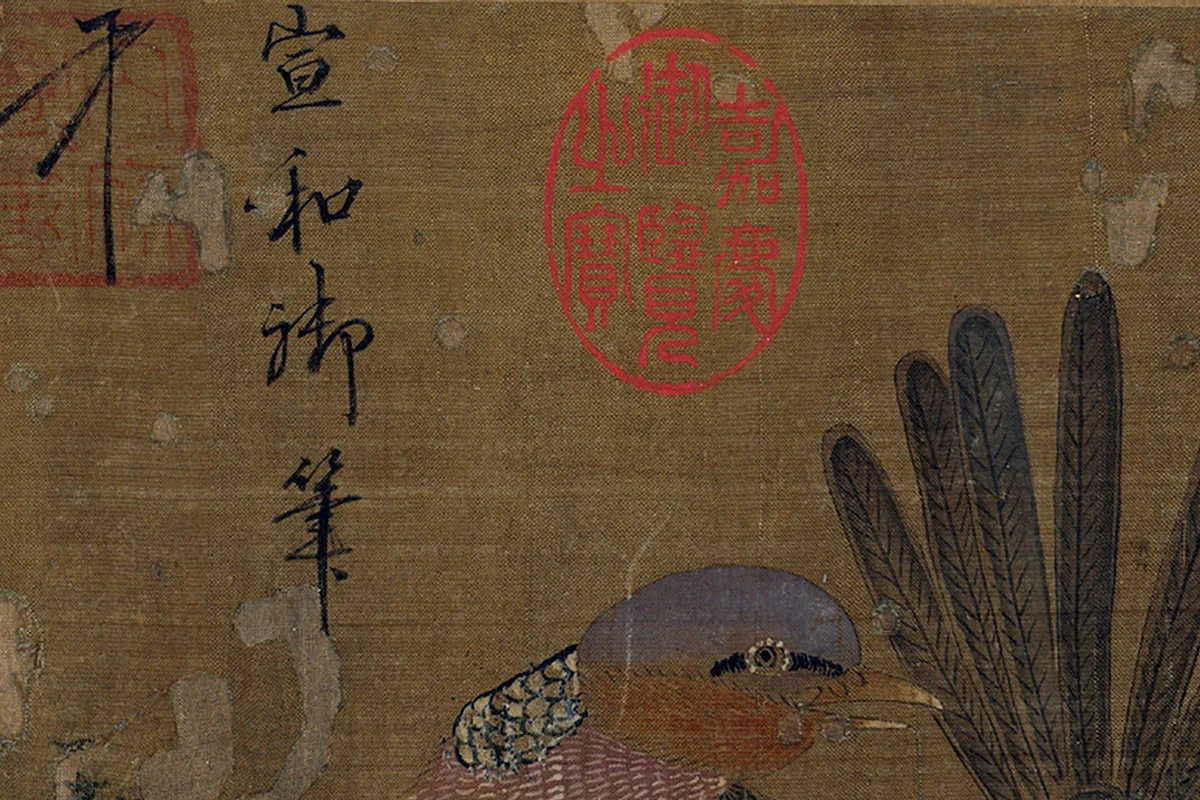 嘉慶
御覽
之寶
宣和御筆